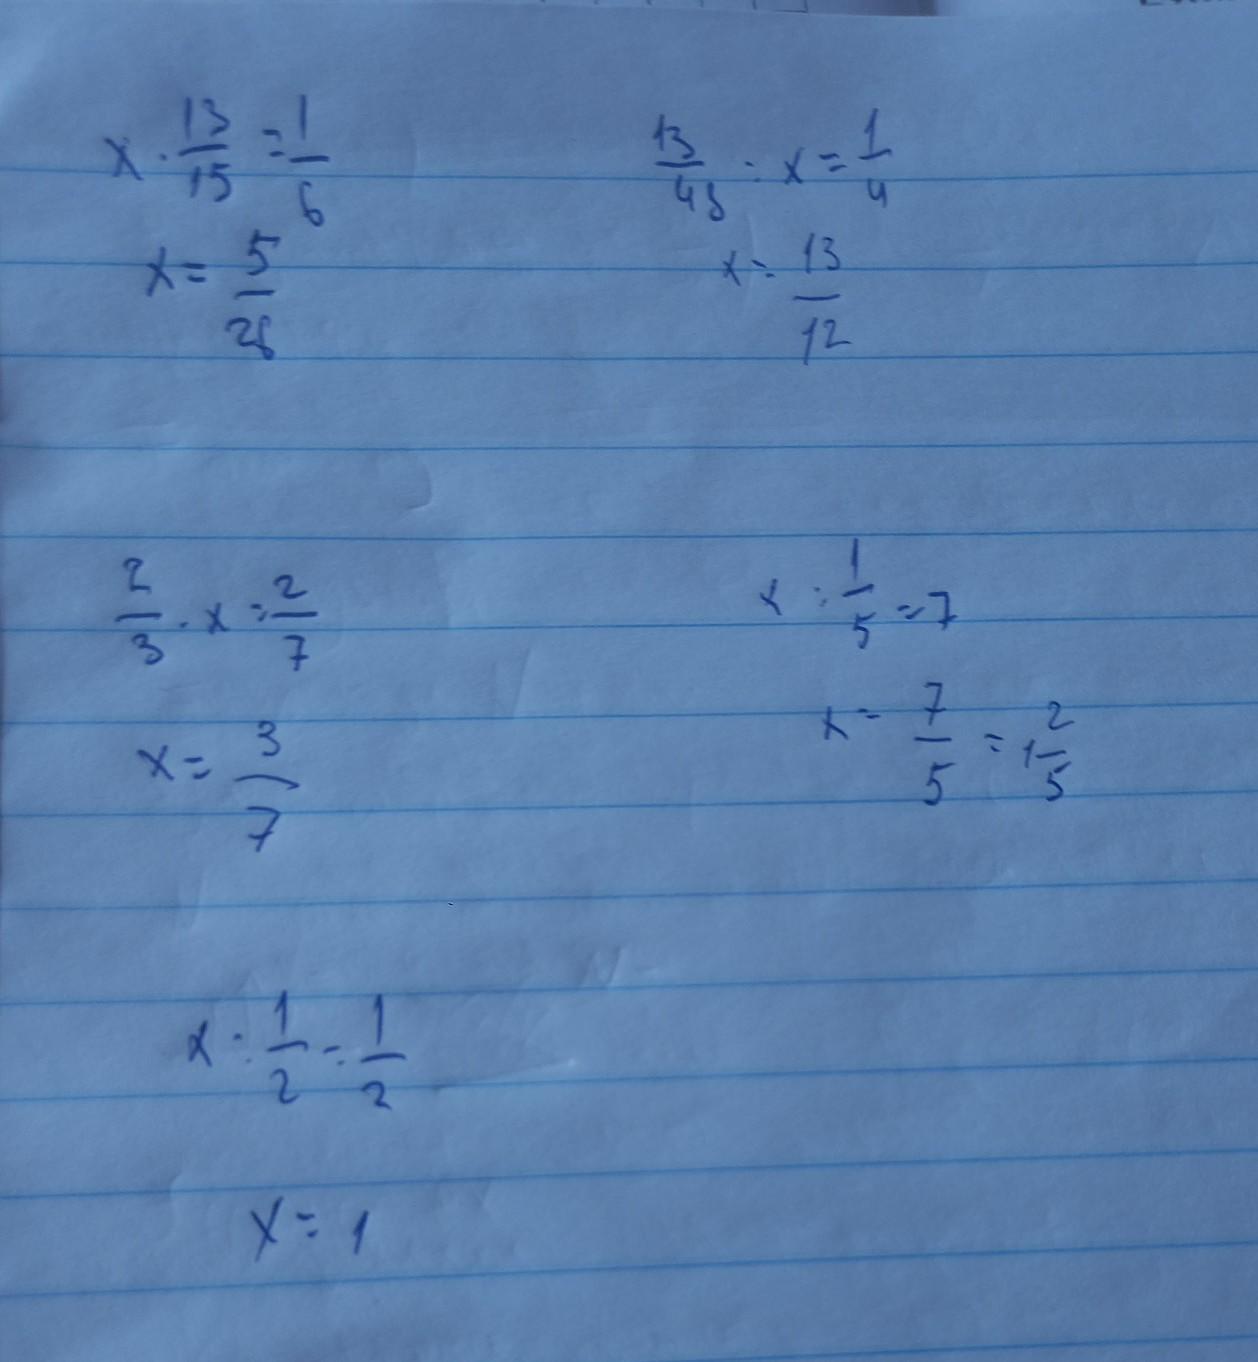 x · 13/15 = 1/6
x = 5/26
13/48 : x = 1/4
x = 13/12
2/3 · x = 2/7
x = 3/7
x : 1/5 = 7
x = 7/5 = 1 2/5
x : 1/2 = 1/2
x = 1